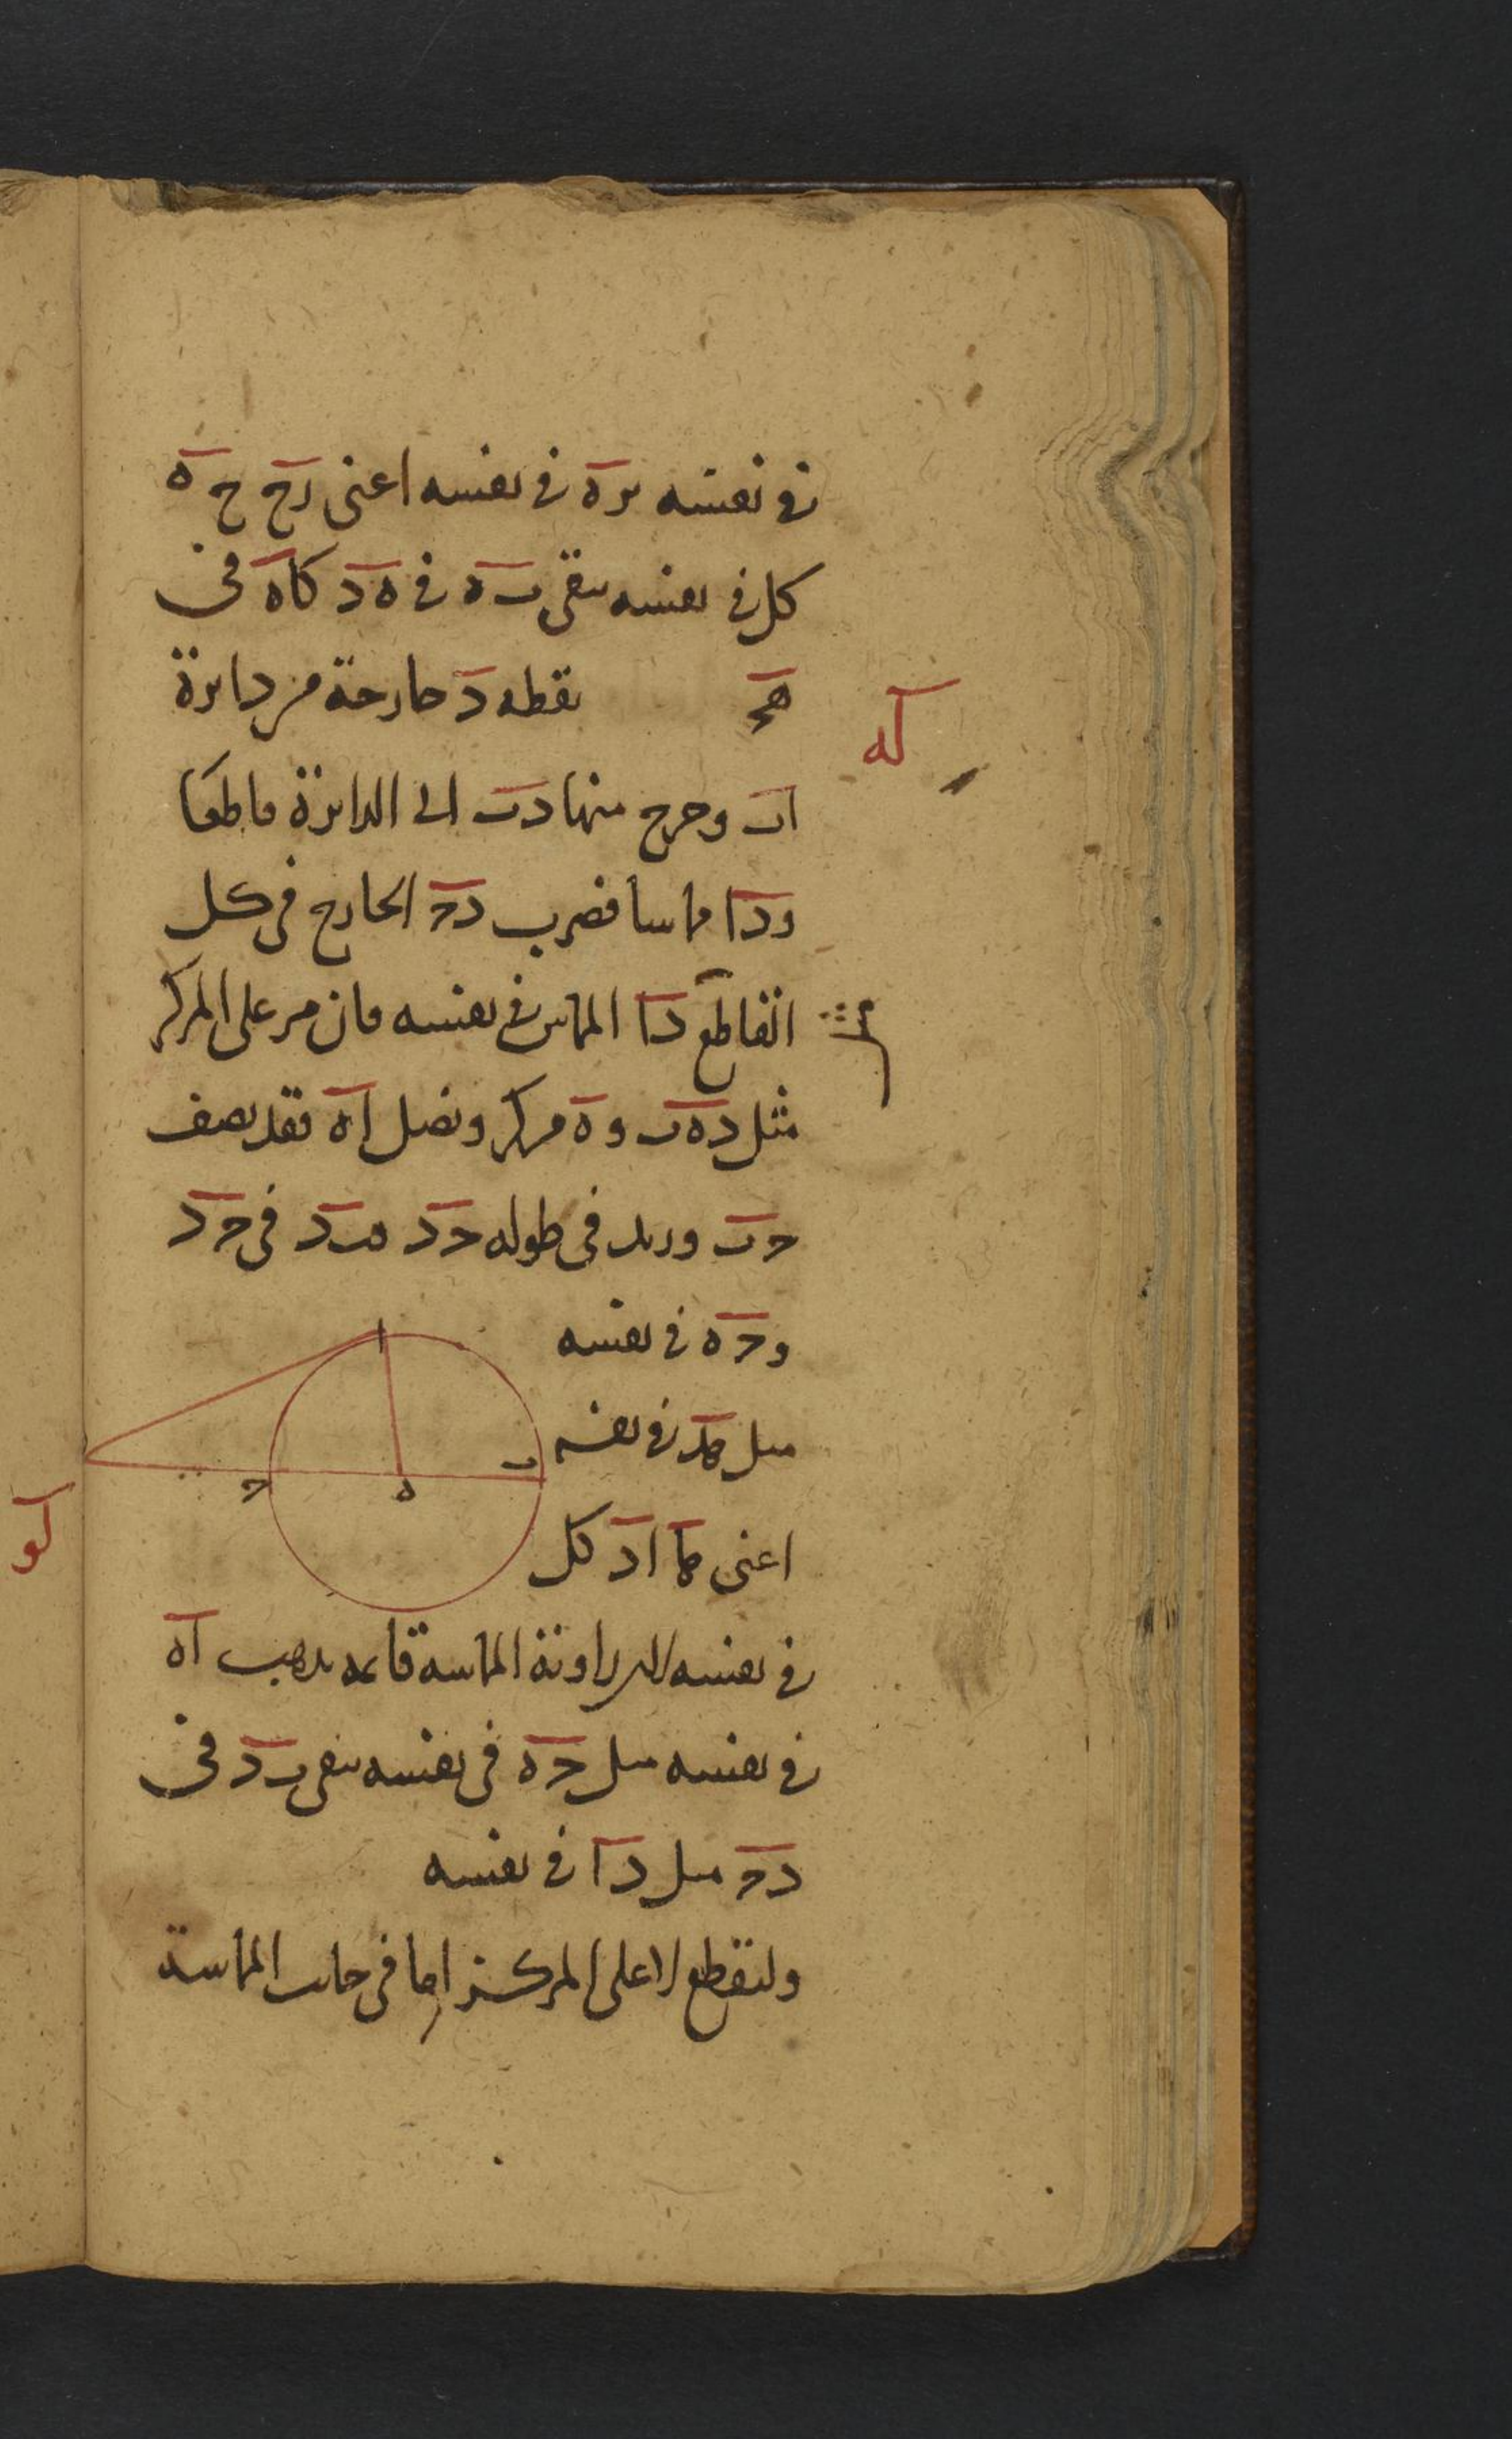 في نفسه بل زه في نفسه اعنى زح ح ه
كل في نفسه يبقى ب ه في ه د كا ه في
ه ج نقطه د خارجة من دايرة
له
اب وخرج منها دب الى الدايرة قاطعا
ودا مماسا فضرب دح الخارج في كل
القاطع دا المماس في نفسه فان مر على المركز
مثل ده ب و ه مركز ونصل اه فقد نصف
حب وزيد في طوله حد فبد في حد
وحه في نفسه
مثل هد في نفسه
اعنى ها اد كل
في نفسه لان زاوية المماسة قايمة يذهب اه
في نفسه مثل حه في نفسه يبقى بد في
دح مثل دا في نفسه
ولنقطع لا على المركز اما في جانب المماسة
ا
ب
ه
ح
لو